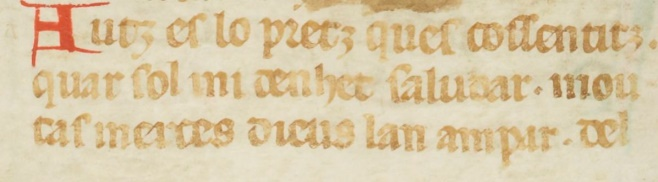 Autz es lo pretz ques cossentitz.
quar sol mi denhet saludar. mou
tas merces dieus lan ampar. del